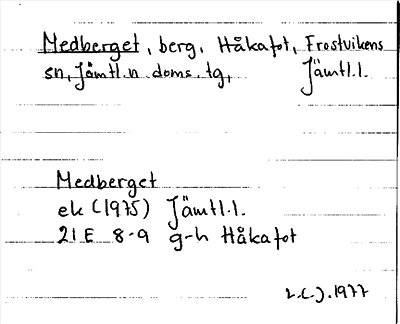 Medberget, berg, Håkafot, Frostvikens
sn, Jämtl. n. doms. tg, Jämtl. l.
Medberget
ek (1975) Jämtl. l.
21 E 8-9 g-h Håkafot
1977